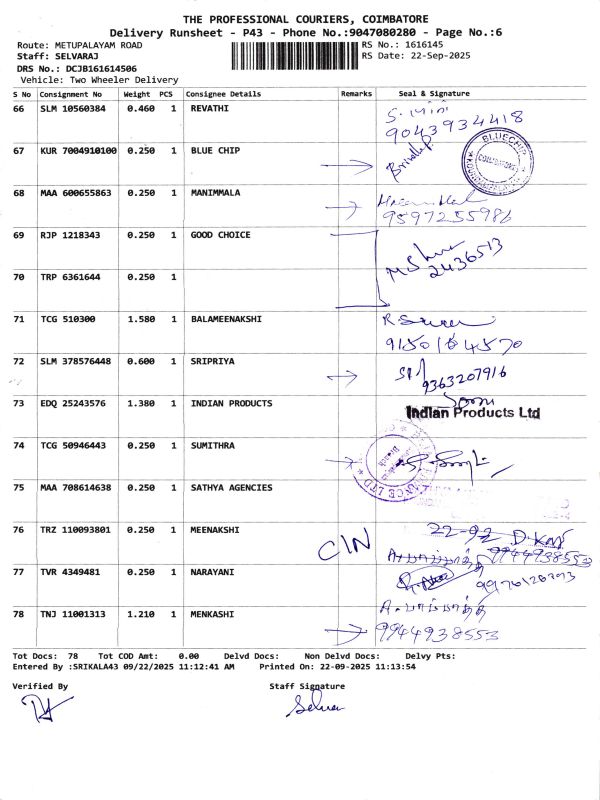 THE PROFESSIONAL COURIERS, COIMBATORE
Delivery Runsheet - P43 - Phone No.:9047080280 - Page No.:6
Route: METUPALAYAM ROAD
Staff: SELVARAJ
DRS No.: DCJB161614506
Vehicle: Two Wheeler Delivery
RS No.: 1616145
RS Date: 22-Sep-2025
S No Consignment No Weight PCS Consignee Details Remarks Seal & Signature
66 SLM 10560384 0.460 1 REVATHI
9043934418
67 KUR 7004910100 0.250 1 BLUE CHIP
BLUECHIP
68 MAA 600655863 0.250 1 MANIMMALA
9597255986
69 RJP 1218343 0.250 1 GOOD CHOICE
2436513
70 TRP 6361644 0.250 1
71 TCG 510300 1.580 1 BALAMEENAKSHI
72 SLM 378576448 0.600 1 SRIPRIYA
9363207916
73 EDQ 25243576 1.380 1 INDIAN PRODUCTS
Indian Products Ltd
74 TCG 50946443 0.250 1 SUMITHRA
75 MAA 708614638 0.250 1 SATHYA AGENCIES
76 TRZ 110093801 0.250 1 MEENAKSHI
CIN
9944938553
77 TVR 4349481 0.250 1 NARAYANI
78 TNJ 11001313 1.210 1 MENKASHI
9944938553
Tot Docs: 78 Tot COD Amt: 0.00 Delvd Docs: Non Delvd Docs: Delvy Pts:
Entered By :SRIKALA43 09/22/2025 11:12:41 AM Printed On: 22-09-2025 11:13:54
Verified By Staff Signature
Selva